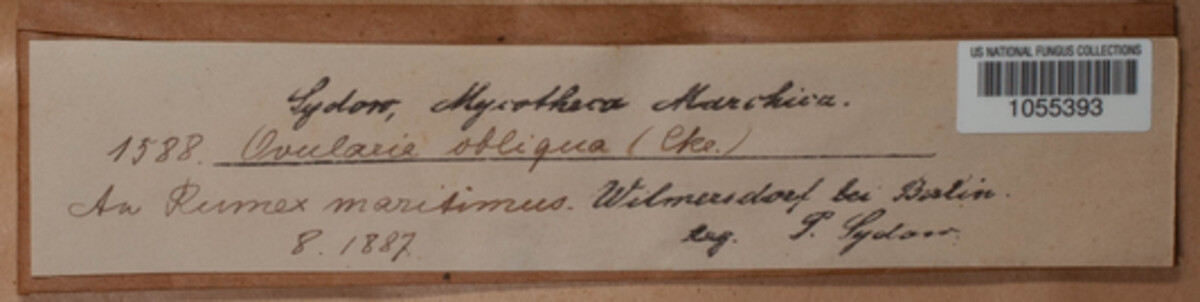 US NATIONAL FUNGUS COLLECTIONS
1055393
Sydow, Mycotheca Marchica.
1588. Ovularia obliqua (Cke.)
An Rumex maritimus. Wilmersdorf bei Berlin.
8. 1887. leg. P. Sydow.